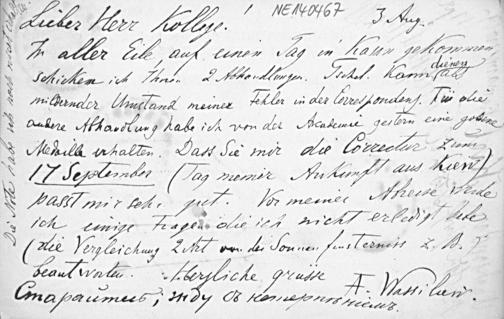 Lieber Herr Kollege! NE140467 3 Aug.
In aller Eile auf einen Tag in Kasan gekommen
schicken ich Ihnen 2 Abhandlungen. kann als dienen
mildernder Umstand meiner Fehler in der Correspondenz. Für die
andere Abhandlung habe ich von der Academie gestern eine goldene
Medaille erhalten. Dass Sie mir die Correctur zum
17 September (Tag meiner Ankunft aus Kiew)
passt mir sehr gut. Vor meiner werde
ich einige Fragen die ich nicht erledigt habe
(die Vergleichung 2 Art von der Sonnenfinsterniss z. B.)
beantworten. Herzliche Grüsse A. Wassiliew.
Стараитесь; жду с нетерпением.
Die Note habe ich noch nicht